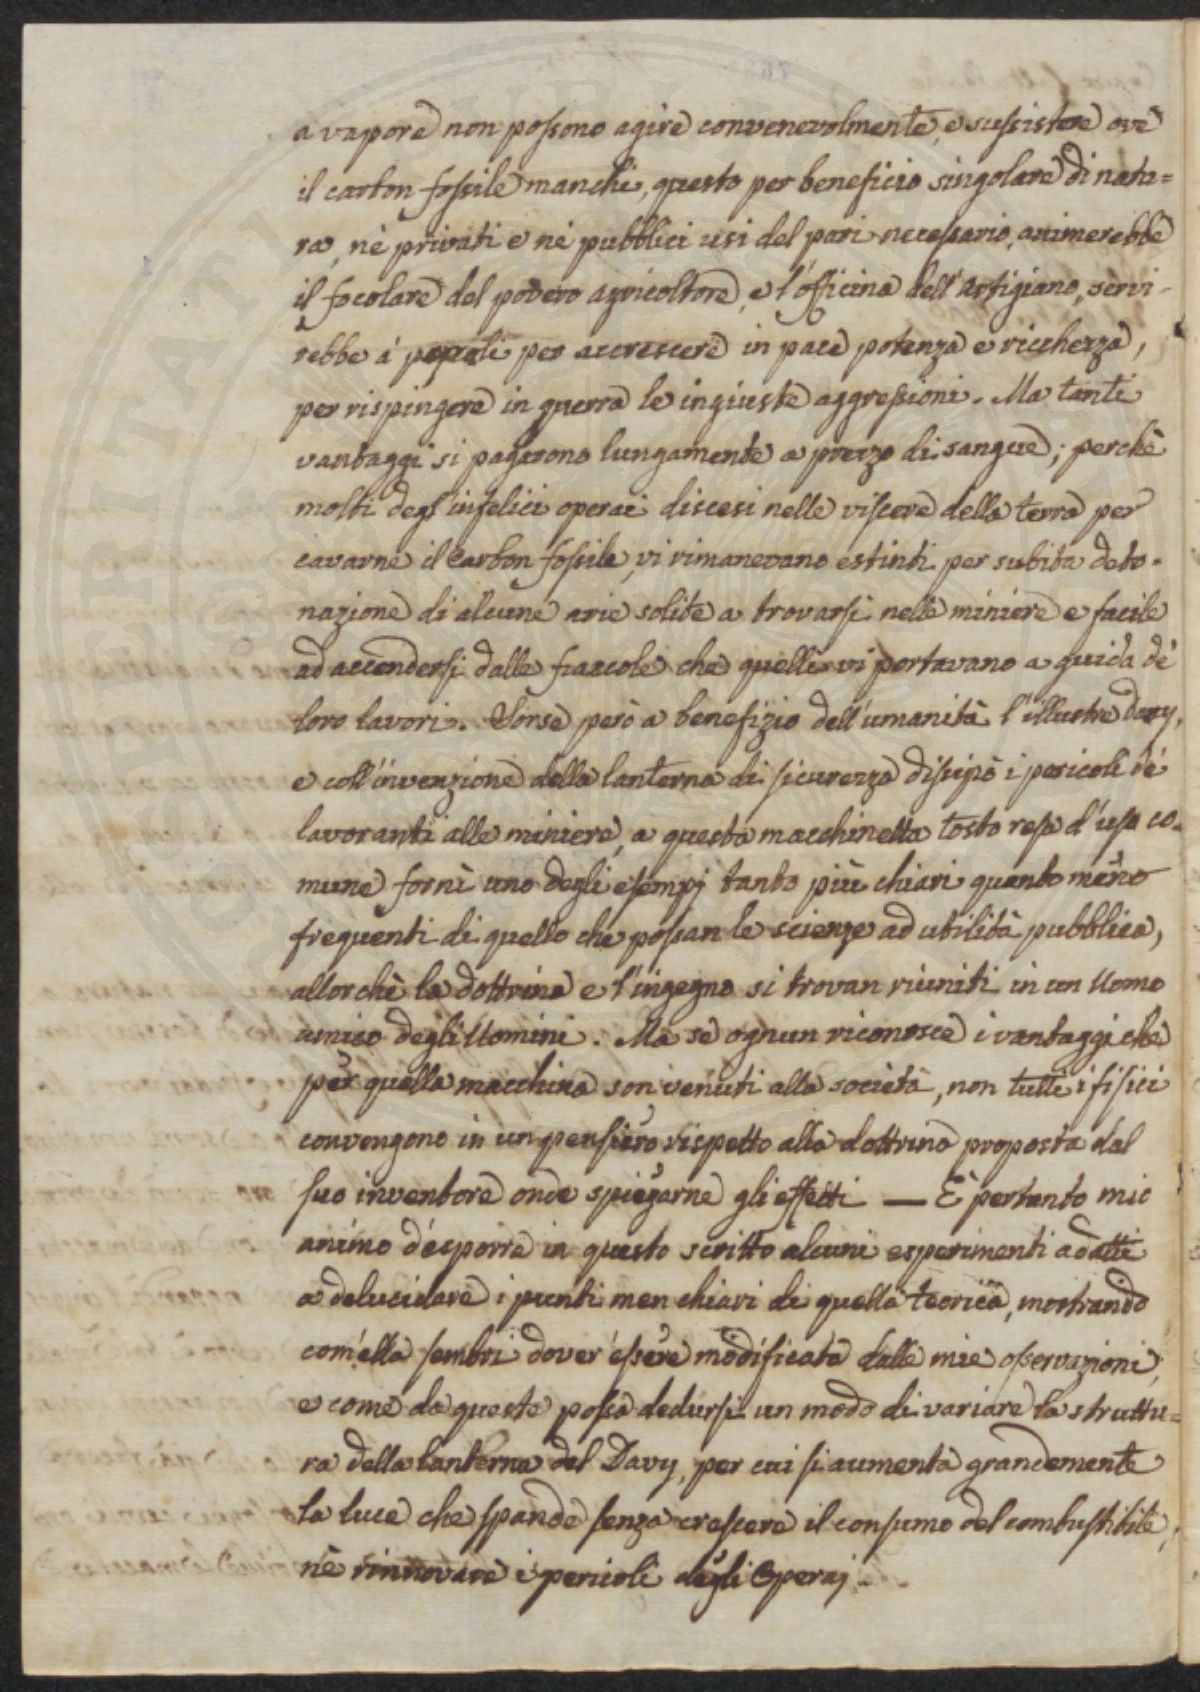 a vapore non possono agire convenevolmente, e sussistere ove
il carbon fossile manchi, questo per beneficio singolare di natu=
ra, nè privati e nè pubblici usi del pari necessario, animerebbe
il focolare del povero agricoltore, e l'officina dell'Artigiano, servi-
rebbe a' popoli per accrescere in pace potenza e ricchezza,
per rispingere in guerra le ingiuste aggressioni. Ma tanti
vantaggi si pagarono lungamente a prezzo di sangue; perchè
molti degl'infelici operai discesi nelle viscere della terra per
cavarne il Carbon fossile, vi rimanevano estinti per subita deto-
nazione di alcune arie solite a trovarsi nelle miniere e facile
ad accendersi dalle fiaccole che quelli vi portavano a guida de'
loro lavori. Sorse però a benefizio dell'umanità l'illustre Davy,
e coll'invenzione della lanterna di sicurezza dissipò i pericoli de'
lavoranti alle miniere, a questa macchinetta tosto resa d'uso co-
mune fornì uno degli esempj tanto più chiari quanto meno
frequenti di quello che possan le scienze ad utilità pubblica,
allorchè la dottrina e l'ingegno si trovan riuniti in un Uomo
amico degli Uomini. Ma se ognun riconosce i vantaggi che
per quella macchina son venuti alla società, non tutti i fisici
convengono in un pensiero rispetto alla dottrina proposta dal
suo inventore onde spiegarne gli effetti — È pertanto mio
animo d'esporre in questo scritto alcuni esperimenti adatti
a delucidare i punti men chiari di quella teorica, mostrando
com'ella sembri dover essere modificata dalle mie osservazioni,
e come da queste possa dedursi un modo di variare la struttu=
ra della lanterna del Davy, per cui si aumenta grandemente
la luce che spande senza crescere il consumo del combustibile,
nè rinnovare i pericoli degli Operaj.